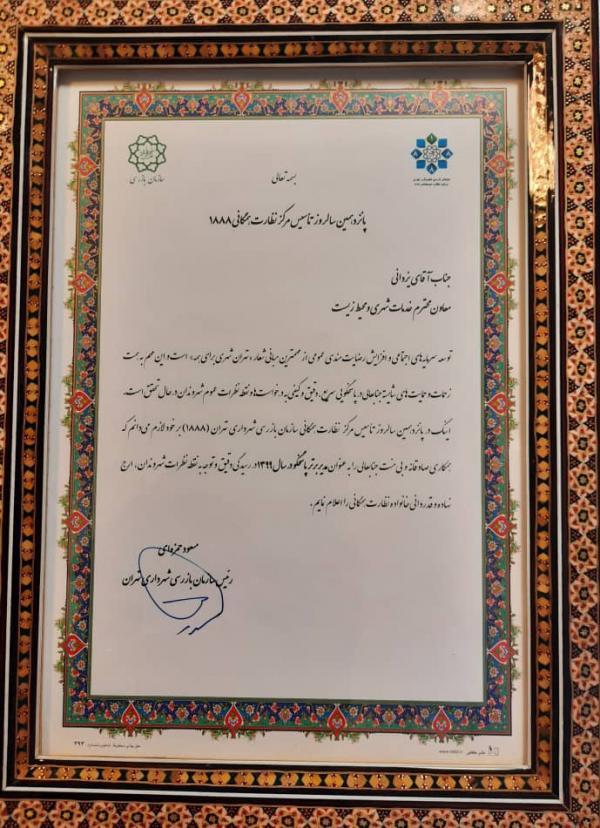 بسمه تعالی
سازمان بازرسی
پانزدهمین سالروز تاسیس مرکز نظارت همگانی ۱۸۸۸
جناب آقای یزدانی
معاون محترم خدمات شهری و محیط زیست
توسعه سرمایه‌های اجتماعی و افزایش رضایت مندی عمومی از مهمترین مبانی شعار «تهران شهری برای همه» است و این مهم به همت
زحمات و حمایت های شایسته جنابعالی در پاسخگویی سریع، دقیق و کیفی به درخواست‌ها و نقطه نظرات عموم شهروندان در حال تحقق است.
اینک در پانزدهمین سالروز تاسیس مرکز نظارت همگانی سازمان بازرسی شهرداری تهران (۱۸۸۸) بر خود لازم می دانم که
همکاری صادقانه و بی منت جنابعالی را به عنوان مدیر برتر پاسخگو در سال ۱۳۹۹ در رسیدگی دقیق و توجه به نقطه نظرات شهروندان، ارج
نهاده و قدردانی خانواده نظارت همگانی را اعلام نمایم.
مسعود حمزه‌ای
رئیس سازمان بازرسی شهرداری تهران